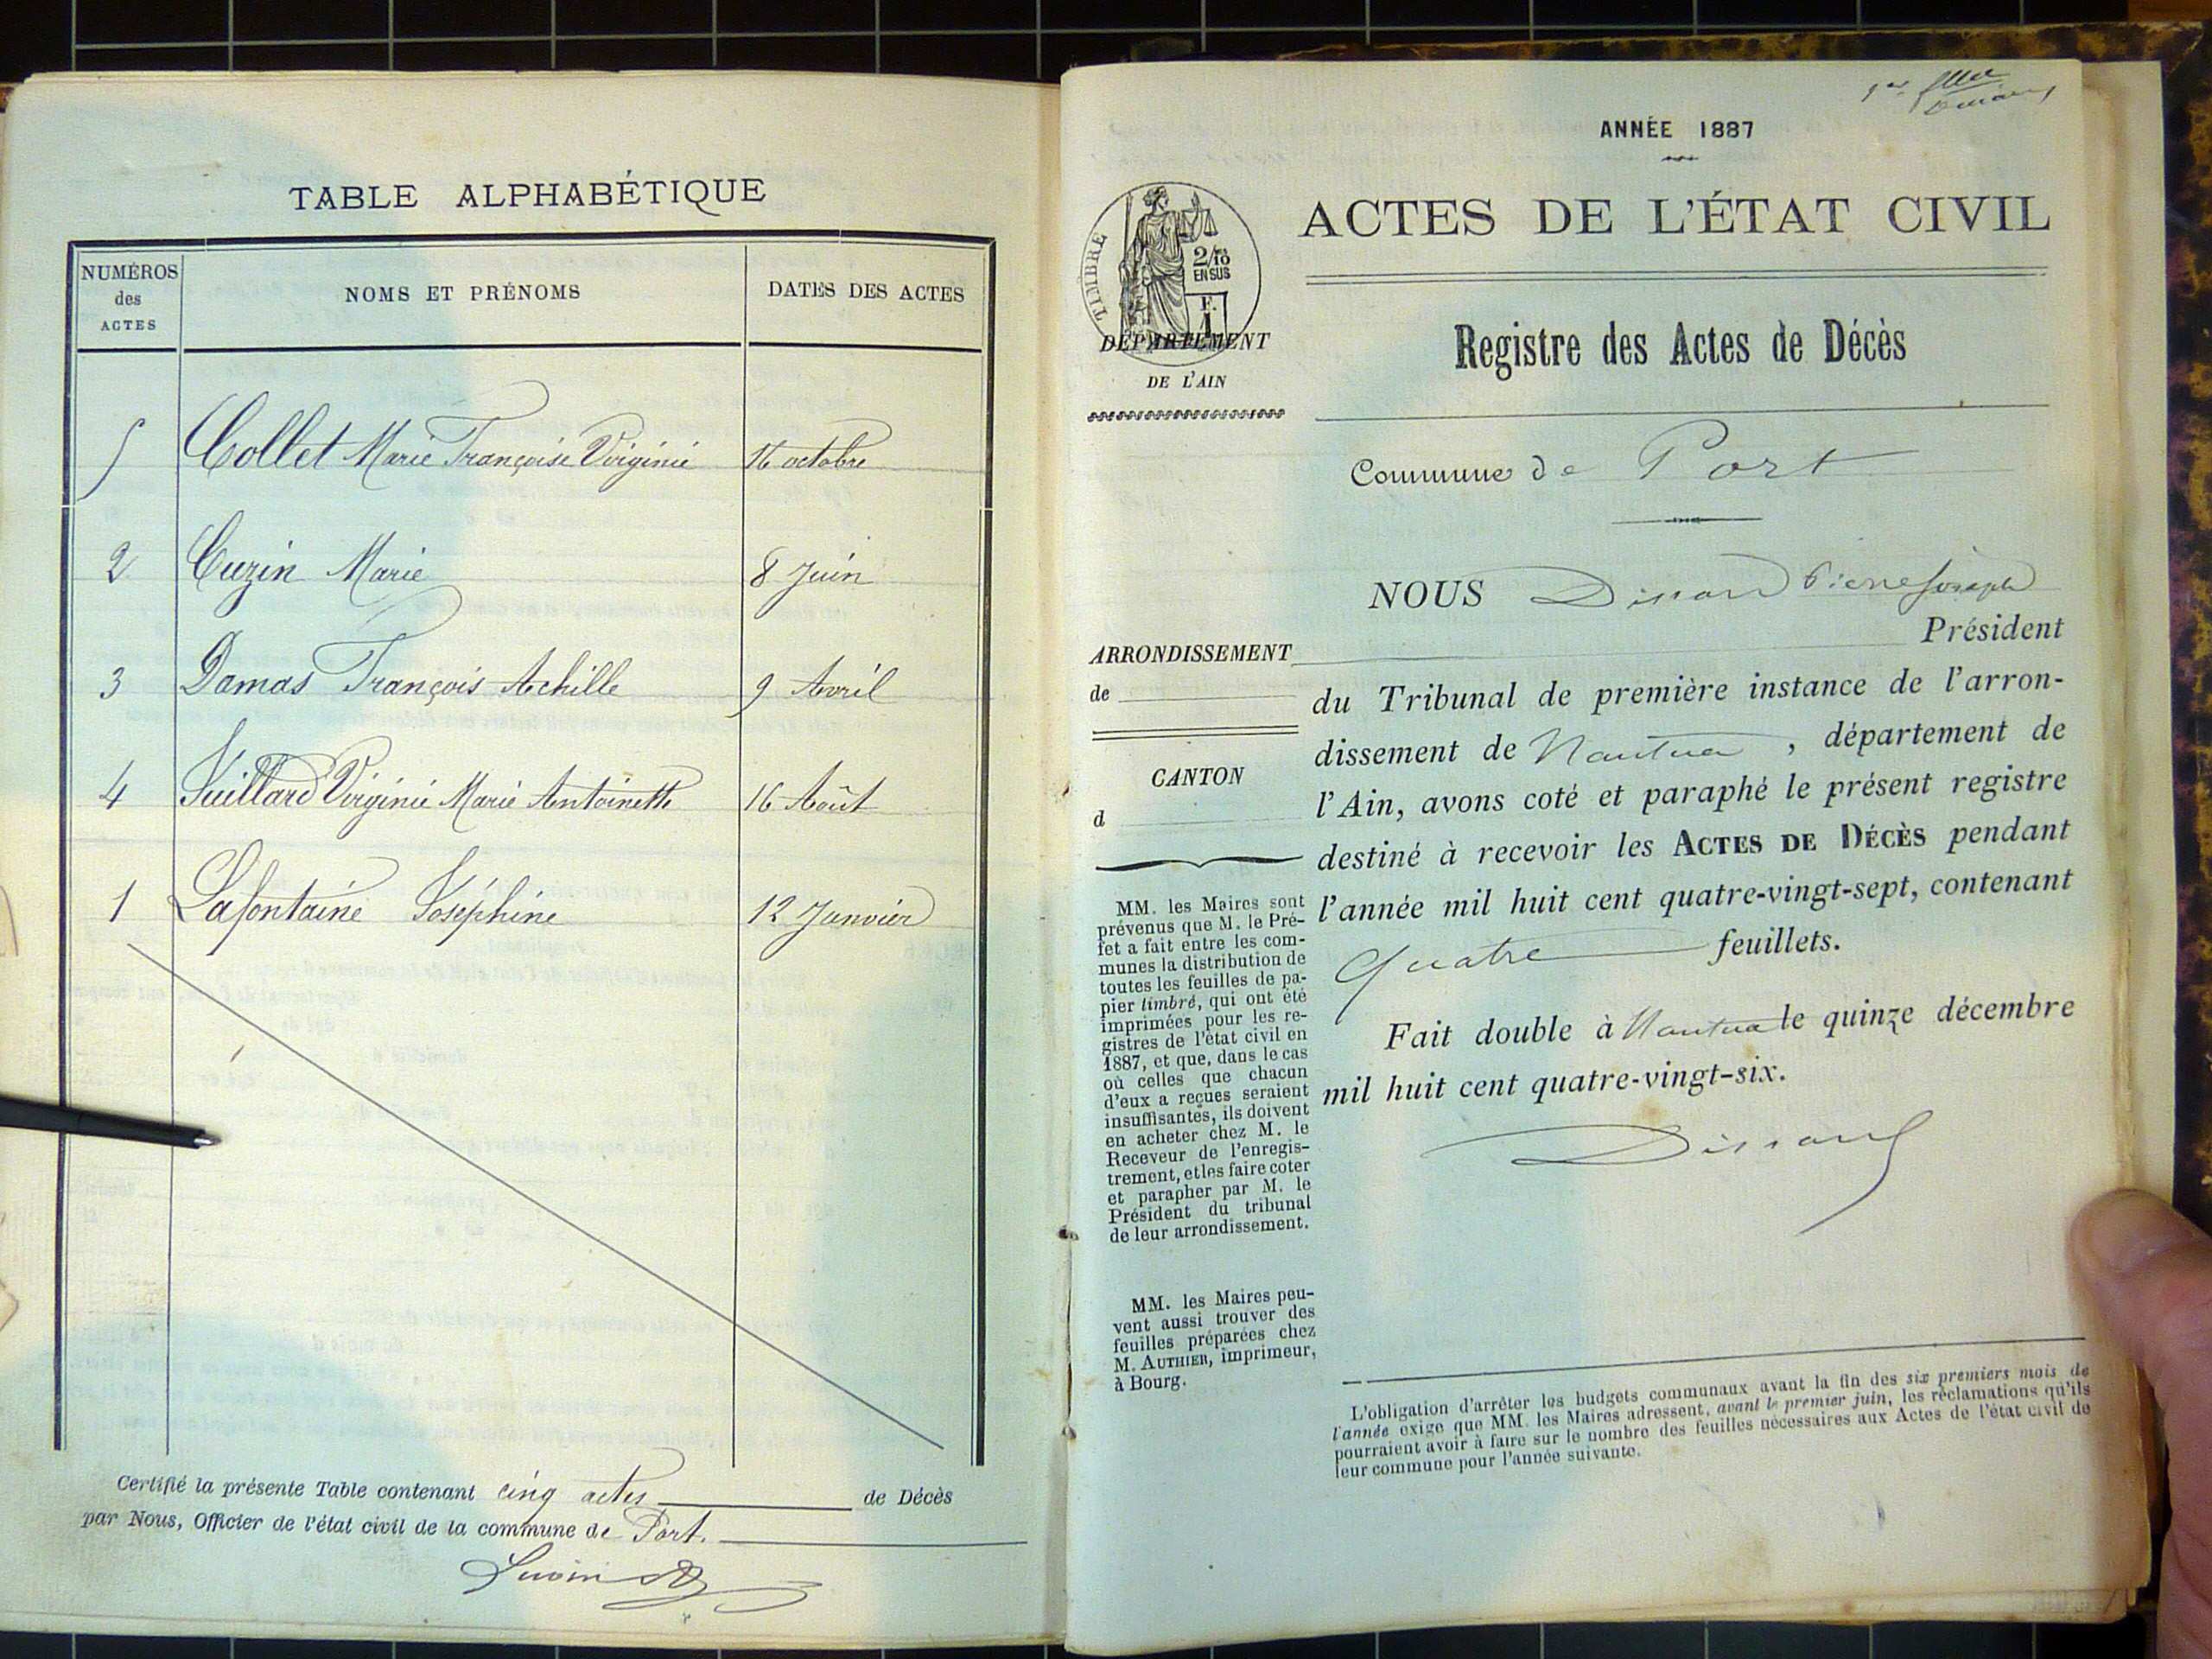 TABLE ALPHABÉTIQUE
NUMÉROS des ACTES
NOMS ET PRÉNOMS
DATES DES ACTES
5 Collet Marie Françoise Virginie 16 octobre
2 Cuzin Marie 8 Juin
3 Damas François Achille 9 Avril
4 Juillard Virginie Marie Antoinette 16 Août
1 Lafontaine Joséphine 12 Janvier
Certifié la présente Table contenant cinq actes de Décès
par Nous, Officier de l'état civil de la commune de Port.
ANNÉE 1887
ACTES DE L'ÉTAT CIVIL
TIMBRE
2/10
EN SUS
F.
1
DÉPARTEMENT
DE L'AIN
Registre des Actes de Décès
Commune de Port
NOUS Pierre Joseph
Président
du Tribunal de première instance de l'arron-
dissement de Nantua, département de
l'Ain, avons coté et paraphé le présent registre
destiné à recevoir les ACTES DE DÉCÈS pendant
l'année mil huit cent quatre-vingt-sept, contenant
Quatre feuillets.
Fait double à Nantua le quinze décembre
mil huit cent quatre-vingt-six.
ARRONDISSEMENT
de
CANTON
d
MM. les Maires sont
prévenus que M. le Pré-
fet a fait entre les com-
munes la distribution de
toutes les feuilles de pa-
pier timbré, qui ont été
imprimées pour les re-
gistres de l'état civil en
1887, et que, dans le cas
où celles que chacun
d'eux a reçues seraient
insuffisantes, ils doivent
en acheter chez M. le
Receveur de l'enregis-
trement, et les faire coter
et parapher par M. le
Président du tribunal
de leur arrondissement.
MM. les Maires peu-
vent aussi trouver des
feuilles préparées chez
M. AUTHIER, imprimeur,
à Bourg.
L'obligation d'arrêter les budgets communaux avant la fin des six premiers mois de
l'année exige que MM. les Maires adressent, avant le premier juin, les réclamations qu'ils
pourraient avoir à faire sur le nombre des feuilles nécessaires aux Actes de l'état civil de
leur commune pour l'année suivante.